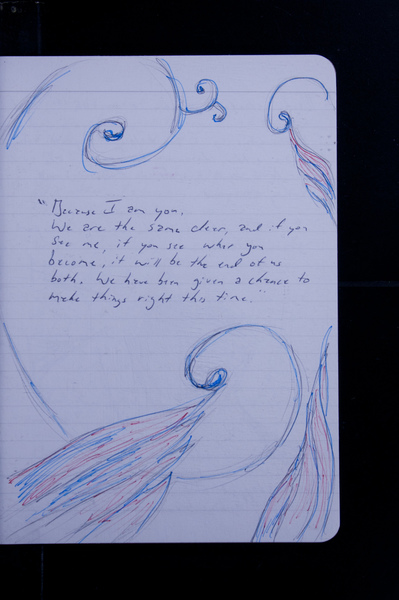 "Because I am you.
We are the same dear, and if you
see me, if you see who you
become, it will be the end of us
both. We have been given a chance to
make things right this time."